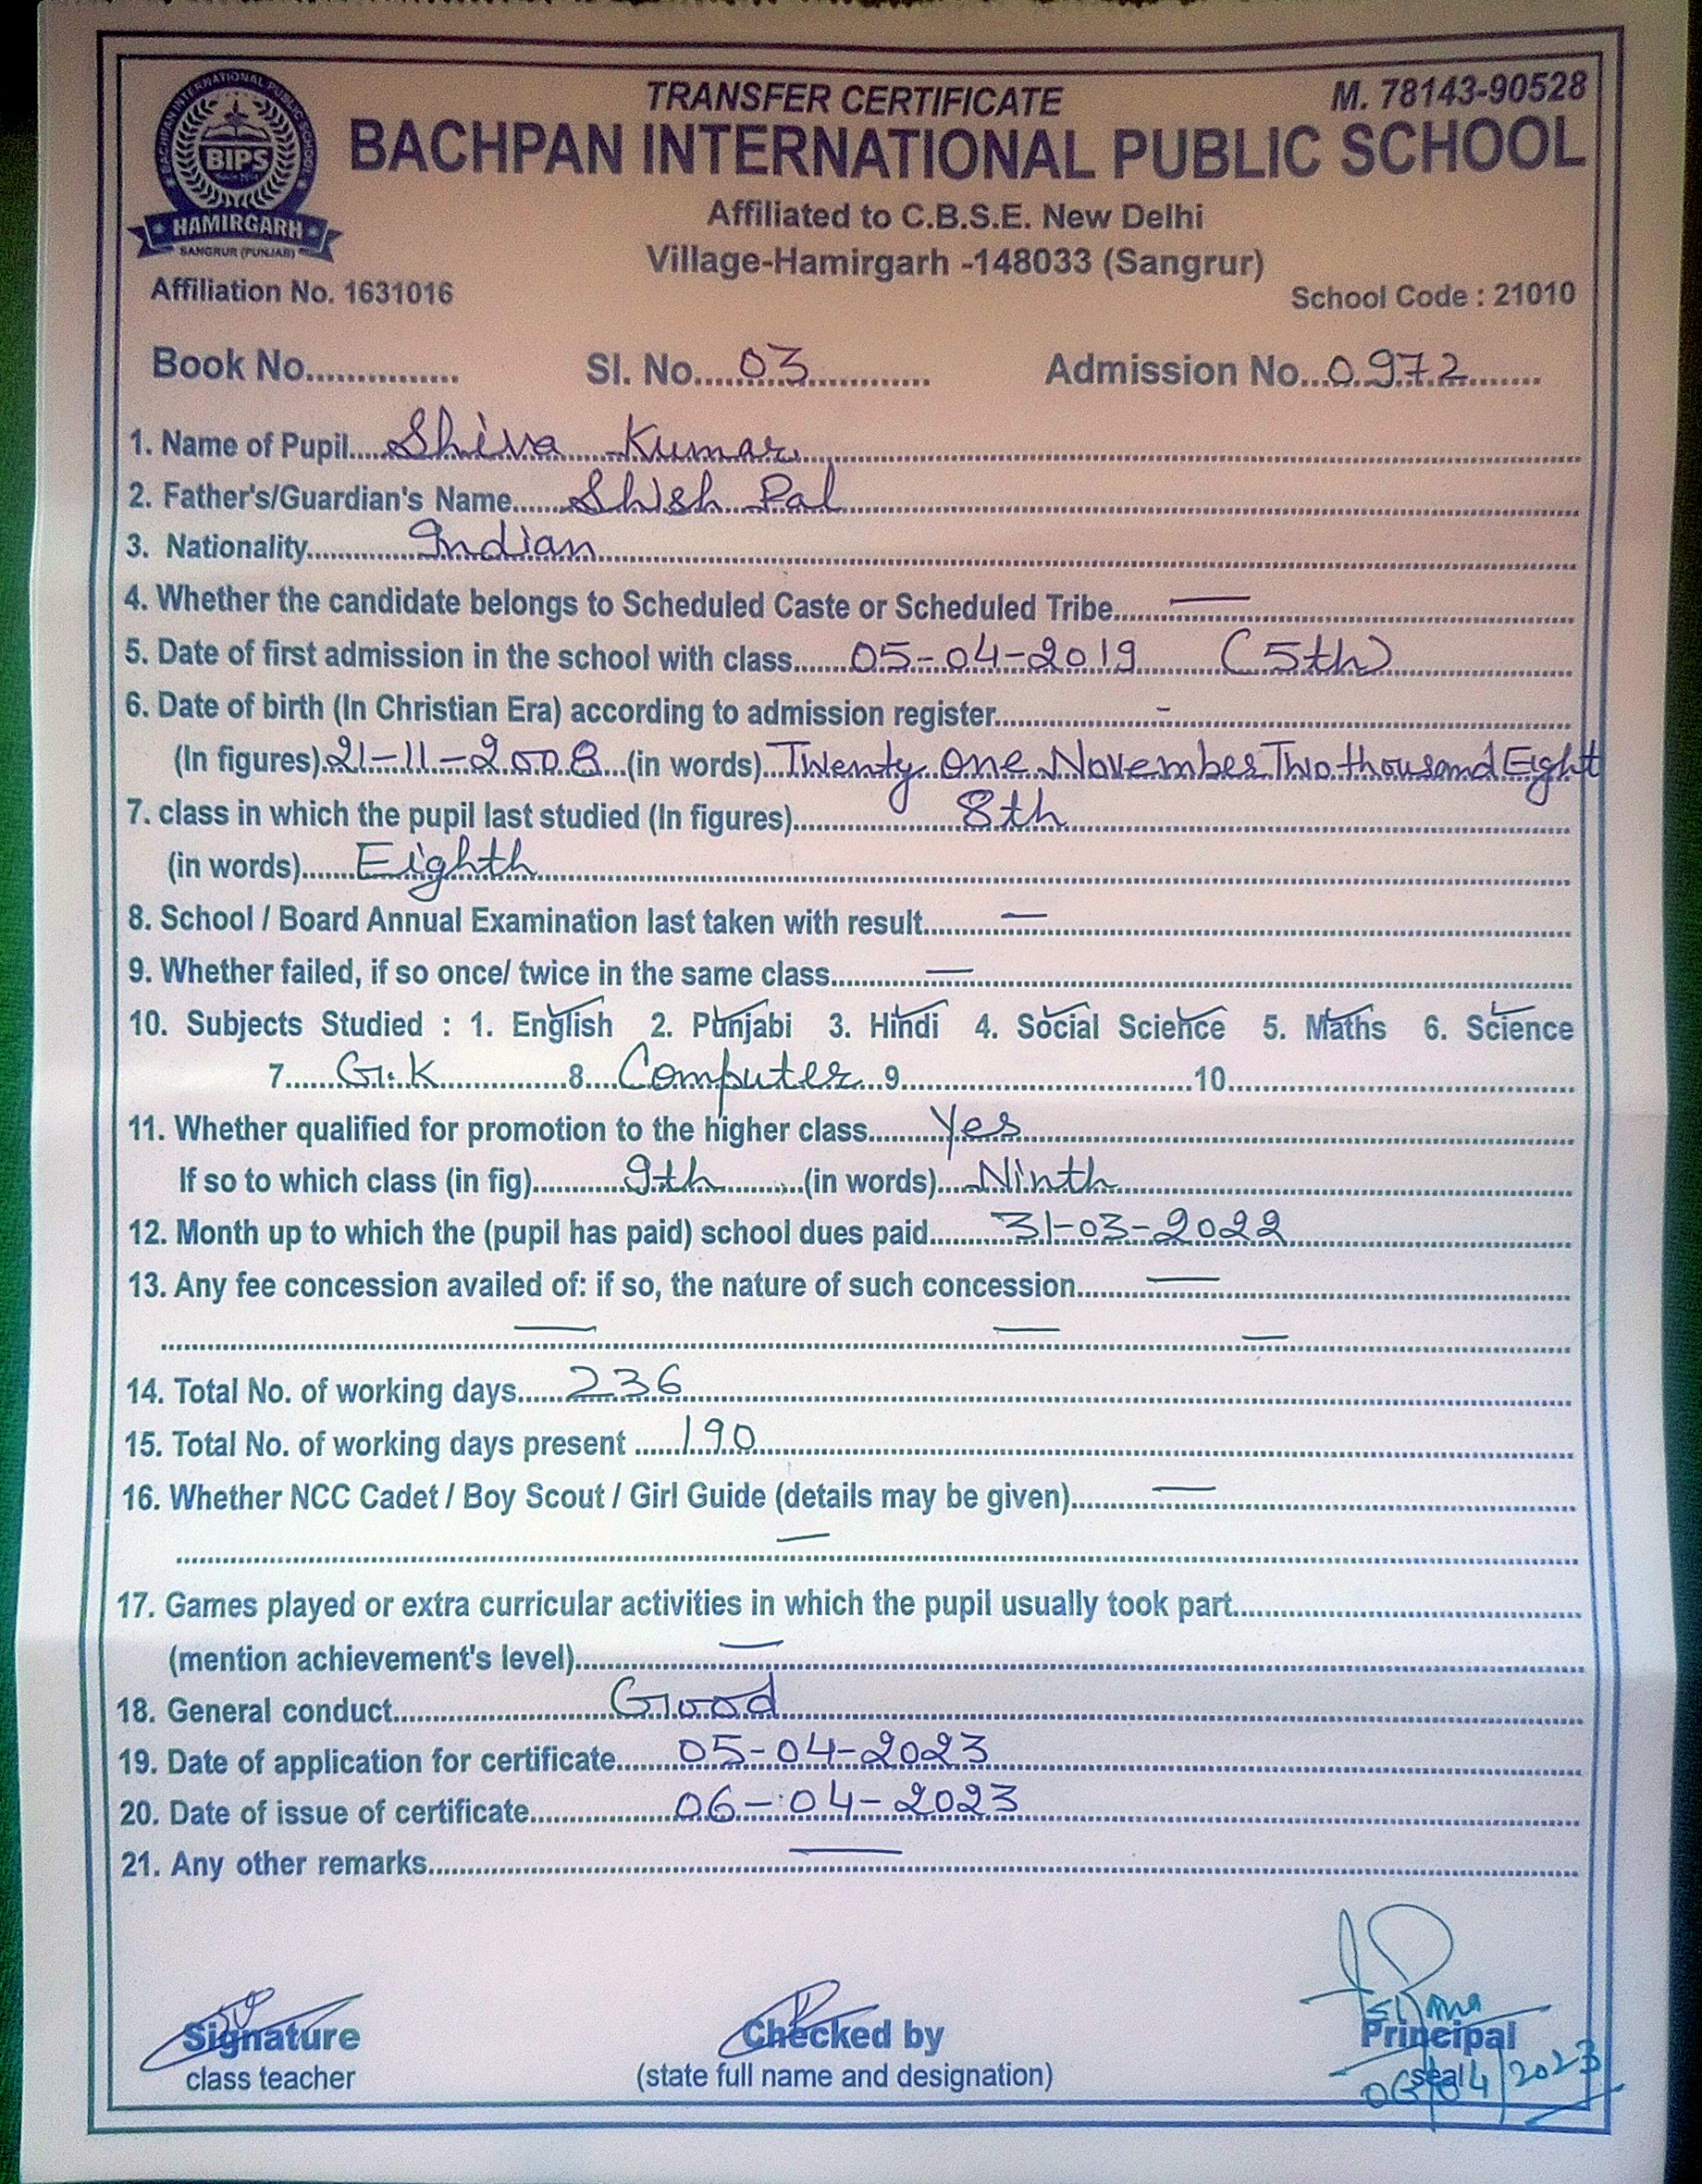 TRANSFER CERTIFICATE
M. 78143-90528
BACHPAN INTERNATIONAL PUBLIC SCHOOL
BACHPAN INTERNATIONAL PUBLIC SCHOOL
BIPS
HAMIRGARH
SANGRUR (PUNJAB)
Affiliated to C.B.S.E. New Delhi
Village-Hamirgarh -148033 (Sangrur)
Affiliation No. 1631016
School Code : 21010
Book No............... Sl. No....03............ Admission No...0972.......
1. Name of Pupil....Shiva Kumar
2. Father's/Guardian's Name......Shish Pal
3. Nationality............Indian
4. Whether the candidate belongs to Scheduled Caste or Scheduled Tribe...... —
5. Date of first admission in the school with class......05-04-2019 (5th)
6. Date of birth (In Christian Era) according to admission register........ -
(In figures).21-11-2008...(in words)...Twenty One November Two thousand Eight
7. class in which the pupil last studied (In figures)........8th
(in words)......Eighth
8. School / Board Annual Examination last taken with result...... —
9. Whether failed, if so once/ twice in the same class...... —
10. Subjects Studied : 1. English 2. Punjabi 3. Hindi 4. Social Science 5. Maths 6. Science
7......G.K..............8....Computer...9..............................10..............................
11. Whether qualified for promotion to the higher class......Yes
If so to which class (in fig)......9th......(in words)....Ninth
12. Month up to which the (pupil has paid) school dues paid......31-03-2022
13. Any fee concession availed of: if so, the nature of such concession...... —
— — —
14. Total No. of working days......236
15. Total No. of working days present ......190
16. Whether NCC Cadet / Boy Scout / Girl Guide (details may be given)...... —
—
17. Games played or extra curricular activities in which the pupil usually took part......
(mention achievement's level)...... —
18. General conduct......Good
19. Date of application for certificate......05-04-2023
20. Date of issue of certificate......06-04-2023
21. Any other remarks...... —
Signature
class teacher
Checked by
(state full name and designation)
Principal
seal
06/04/2023